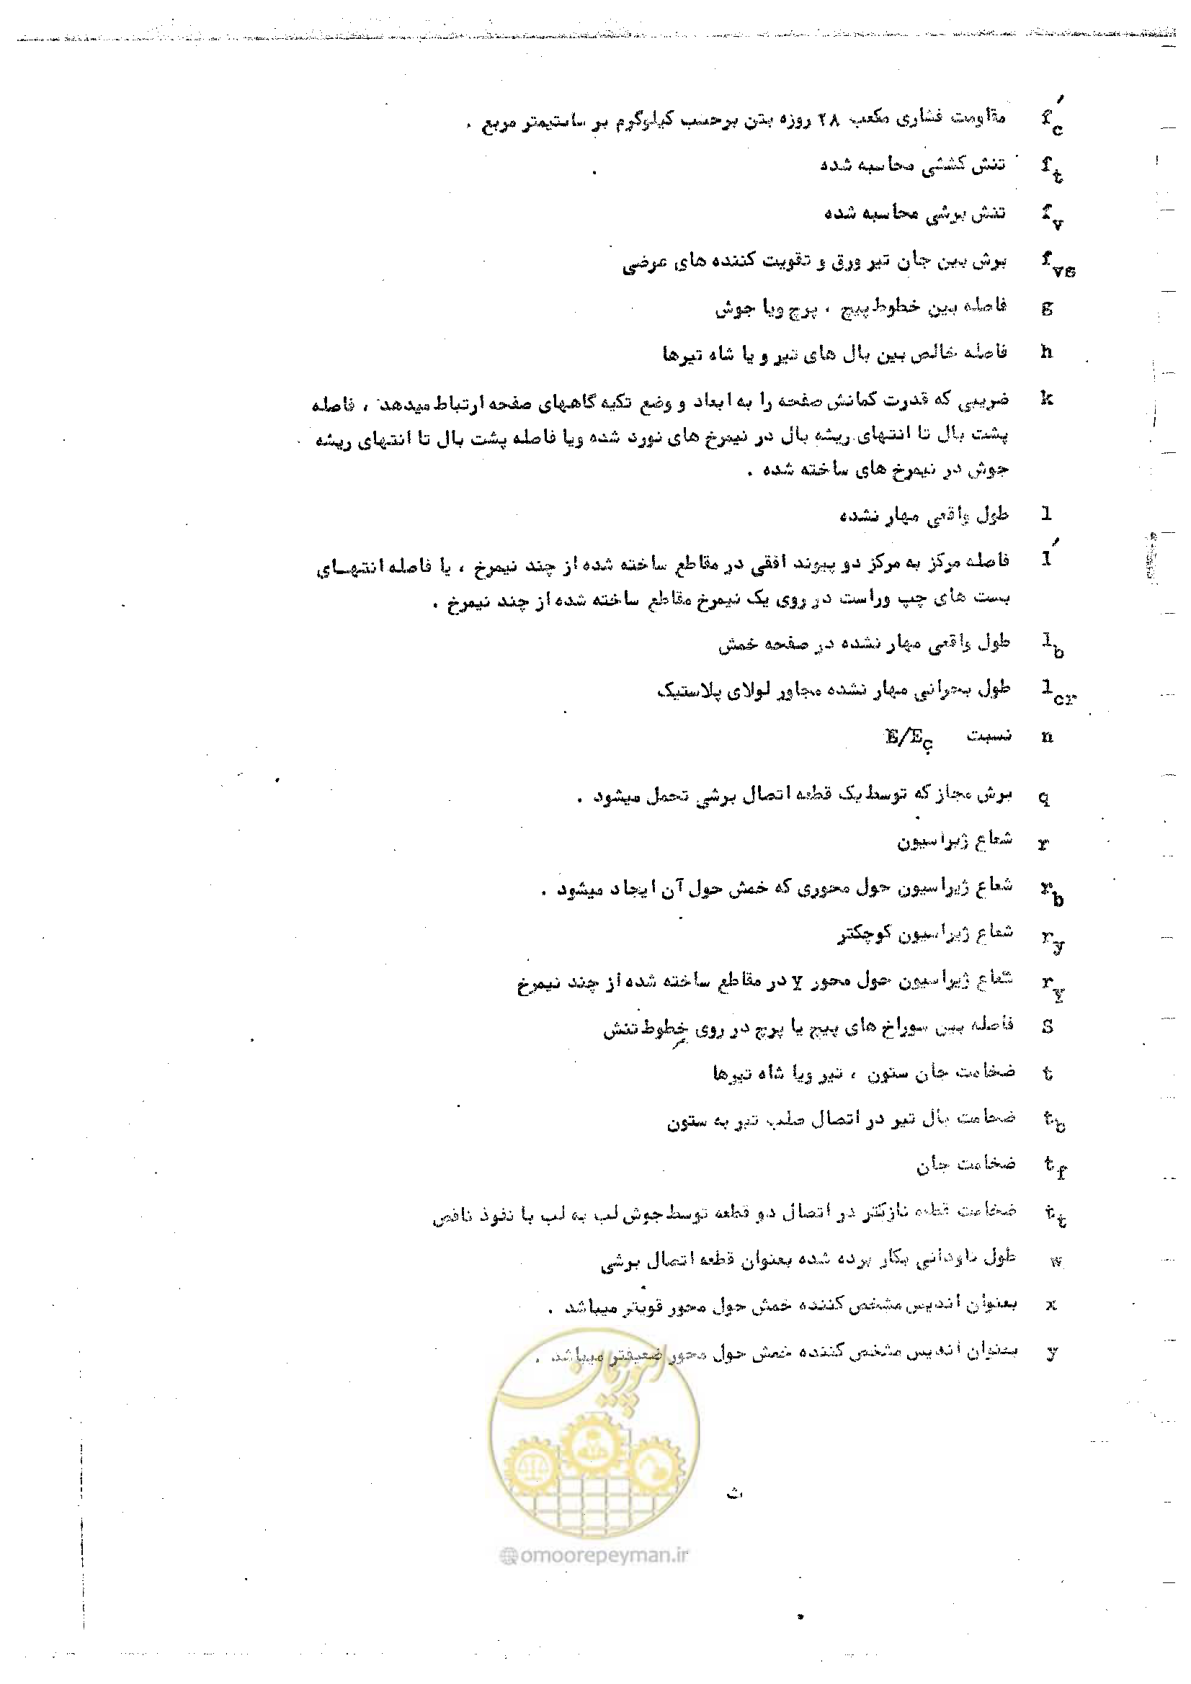 f'c مقاومت فشاری مکعب ۲۸ روزه بتن برحسب کیلوگرم بر سانتیمتر مربع .
ft تنش کششی محاسبه شده
fv تنش برشی محاسبه شده
fvs برش بین جان تیر ورق و تقویت کننده های عرضی
g فاصله بین خطوط پیچ ، پرچ ویا جوش
h فاصله خالص بین بال های تیر و یا شاه تیرها
k ضریبی که قدرت کمانش صفحه را به ابعاد و وضع تکیه گاههای صفحه ارتباط میدهد ، فاصله
پشت بال تا انتهای ریشه بال در نیمرخ های نورد شده ویا فاصله پشت بال تا انتهای ریشه
جوش در نیمرخ های ساخته شده .
l طول واقعی مهار نشده
l' فاصله مرکز به مرکز دو پیوند افقی در مقاطع ساخته شده از چند نیمرخ ، یا فاصله انتهای
بست های چپ وراست در روی یک نیمرخ مقاطع ساخته شده از چند نیمرخ .
lb طول واقعی مهار نشده در صفحه خمش
lcr طول بحرانی مهار نشده مجاور لولای پلاستیک
n نسبت E/Ec
q برش مجاز که توسط یک قطعه اتصال برشی تحمل میشود .
r شعاع ژیراسیون
rb شعاع ژیراسیون حول محوری که خمش حول آن ایجاد میشود .
ry شعاع ژیراسیون کوچکتر
rY شعاع ژیراسیون حول محور Y در مقاطع ساخته شده از چند نیمرخ
S فاصله بین سوراخ های پیچ یا پرچ در روی خطوط تنش
t ضخامت جان ستون ، تیر ویا شاه تیرها
tb ضخامت بال تیر در اتصال صلب تیر به ستون
tf ضخامت جان
tt ضخامت قطعه نازکتر در اتصال دو قطعه توسط جوش لب به لب با نفوذ ناقص
w طول ناودانی بکار برده شده بعنوان قطعه اتصال برشی
x بعنوان اندیس مشخص کننده خمش حول محور قویتر میباشد .
y بعنوان اندیس مشخص کننده خمش حول محور ضعیفتر میباشد .
امور پیمان
ث
@omoorepeyman.ir